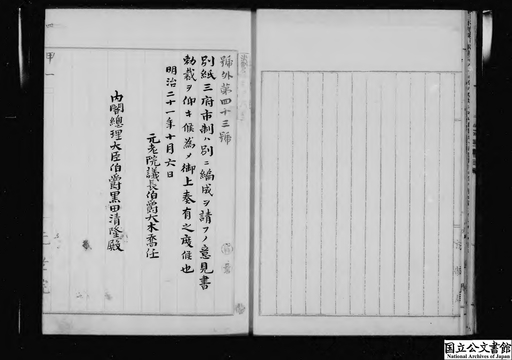 號外第四十三號
別紙三府市制ハ別ニ編成ヲ請フノ意見書
勅裁ヲ仰キ候爲メ御上奏有之度候也
明治二十一年十月六日
元老院議長伯爵大木喬任
内閣總理大臣伯爵黒田清隆殿
甲一
国立公文書館
National Archives of Japan